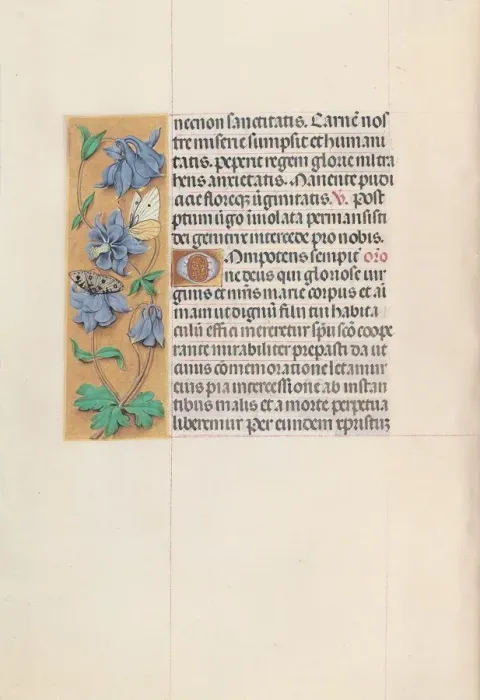 necnon sanctitatis. Carnē nos
tre miserie sumpsit et humani
tatis. peperit regem glorie nil tra
hens anxietatis. Manente pudi
acie floreqꝫ ūginitatis. V. Post
ptum ūgo īuiolata permansisti
dei genitrix intercede pro nobis.
Omnpotens sempit̄ oro
ne deus qui gloriose uir
ginis et m̄ris marie corpus et aī
mam ut dignū filii tui habita
culū effici mereretur spū scō coope
rante mirabiliter preparasti da ut
cuius cōmemoratione letamur
eius pia intercessione ab instan
tibus malis et a morte perpetua
liberemur Per eundem xpristuꝫ